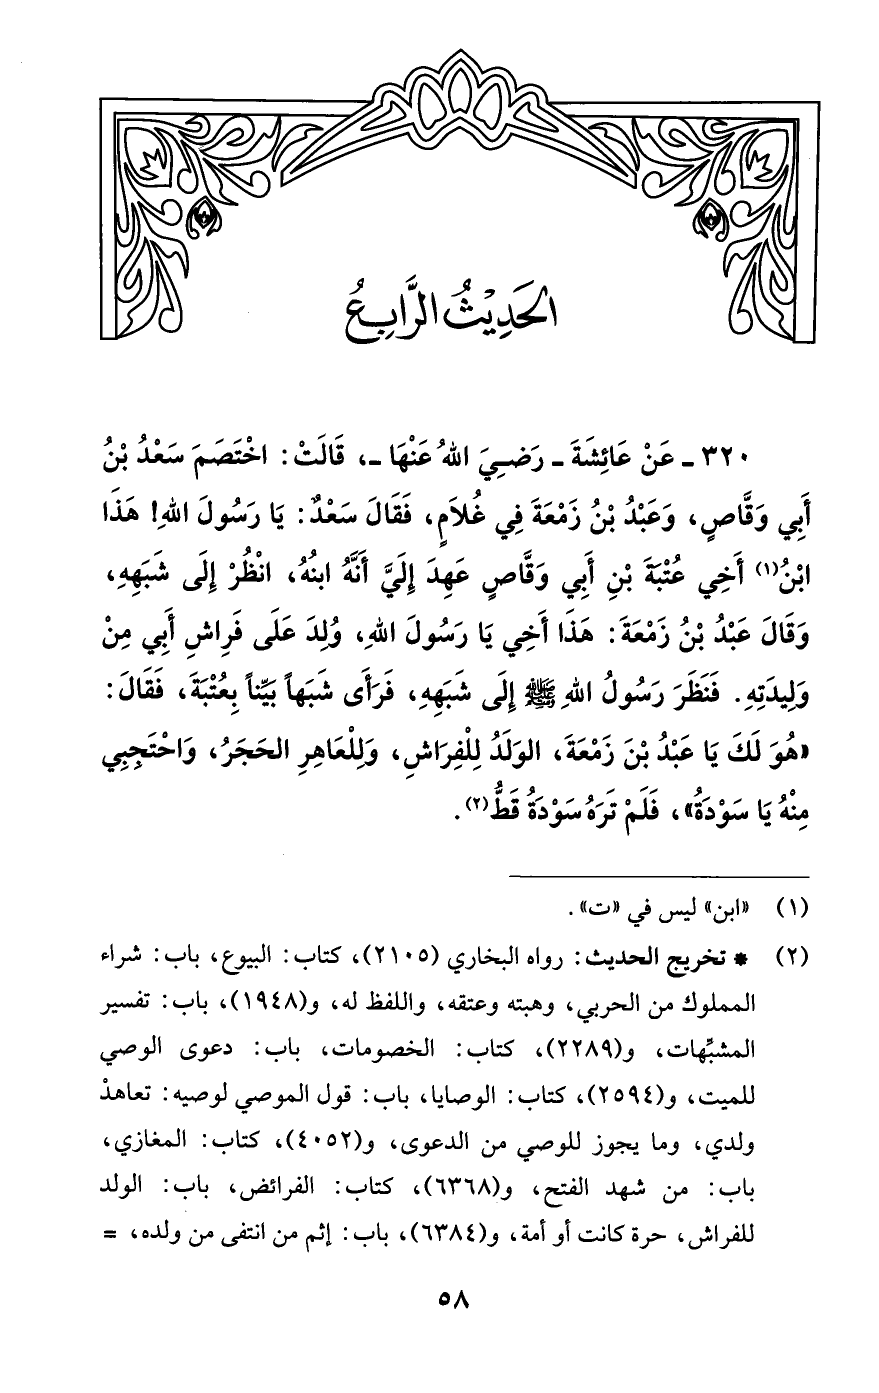 الحَدِيْثُ الرَّابِعُ
٣٢٠ ـ عَنْ عَائِشَةَ ـ رَضِيَ اللهُ عَنْهَا ـ، قَالَتْ: اخْتَصَمَ سَعْدُ بْنُ
أَبِي وَقَّاصٍ، وَعَبْدُ بْنُ زَمْعَةَ فِي غُلَامٍ، فَقَالَ سَعْدٌ: يَا رَسُولَ اللهِ! هَذَا
ابْنُ(١) أَخِي عُتْبَةَ بْنِ أَبِي وَقَّاصٍ عَهِدَ إِلَيَّ أَنَّهُ ابنُهُ، انْظُرْ إِلَى شَبَهِهِ،
وَقَالَ عَبْدُ بْنُ زَمْعَةَ: هَذَا أَخِي يَا رَسُولَ اللهِ، وُلِدَ عَلَى فَرِاشِ أَبِي مِنْ
وَلِيدَتِهِ. فَنَظَرَ رَسُولُ اللهِ ﷺ إِلَى شَبَهِهِ، فَرَأَى شَبَهاً بَيِّناً بِعُتْبَةَ، فَقَالَ:
«هُوَ لَكَ يَا عَبْدُ بْنَ زَمْعَةَ، الوَلَدُ لِلْفِرَاشِ، وَلِلْعَاهِرِ الحَجَرُ، وَاحْتَجِبِي
مِنْهُ يَا سَوْدَةُ»، فَلَمْ تَرَهُ سَوْدَةُ قَطُّ(٢).
(١) «ابن» ليس في «ت».
(٢) * تخريج الحديث: رواه البخاري (٢١٠٥)، كتاب: البيوع، باب: شراء
المملوك من الحربي، وهبته وعتقه، واللفظ له، و(١٩٤٨)، باب: تفسير
المشبِّهات، و(٢٢٨٩)، كتاب: الخصومات، باب: دعوى الوصي
للميت، و(٢٥٩٤)، كتاب: الوصايا، باب: قول الموصي لوصيه: تعاهدْ
ولدي، وما يجوز للوصي من الدعوى، و(٤٠٥٢)، كتاب: المغازي،
باب: من شهد الفتح، و(٦٣٦٨)، كتاب: الفرائض، باب: الولد
للفراش، حرة كانت أو أمة، و(٦٣٨٤)، باب: إثم من انتفى من ولده، =
٥٨